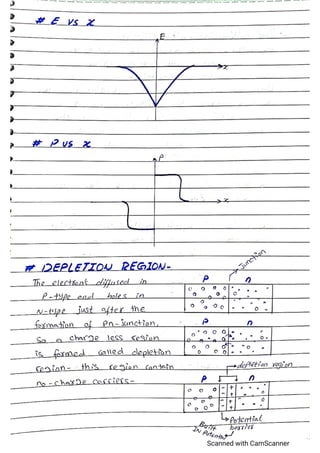 # E vs x
E
x
# P vs x
P
x
# DEPLETION REGION-
Junction
The electront diffused in
P-type and holes in
N-type just after the
formation of Pn-Junction,
So a charge less region
is formed called depletion
region- this region contain
no-charge carriers-
P n
P n
depletion region
P n
Potential
barrier
Built
in Potential
Scanned with CamScanner